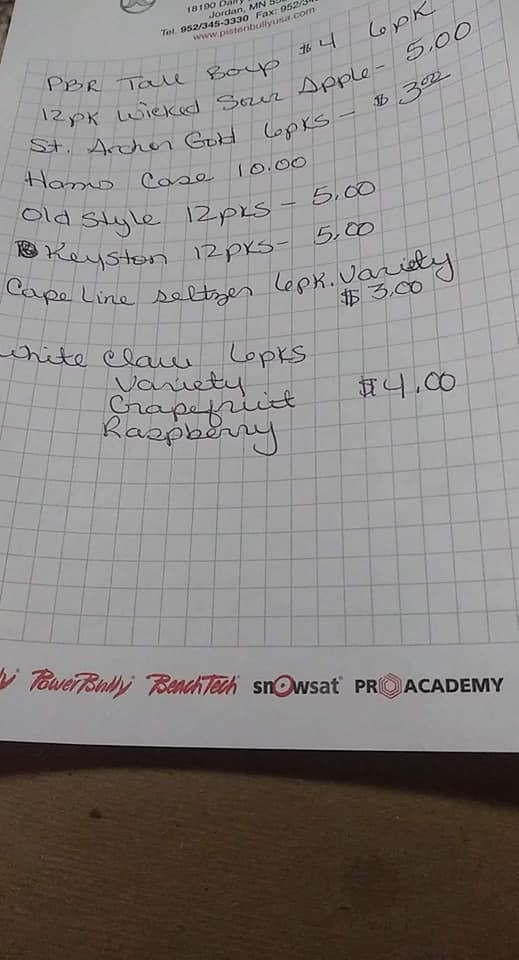 18190 Dairy
Jordan, MN 55
Tel. 952/345-3330 Fax: 952/34
www.pistenbullyusa.com
PBR Tall Boys $4 6pk
12pk Wicked Sour Apple - 5.00
St. Archer Gold 6pks - $3.00
Hams Case 10.00
Old Style 12pks - 5.00
Keyston 12pks - 5.00
Cape Line seltzer 6pk. Variety
$3.00
White Claw 6pks
Variety $4.00
Grapefruitt
Raspberry
PowerBully BeachTech snowsat PRO ACADEMY